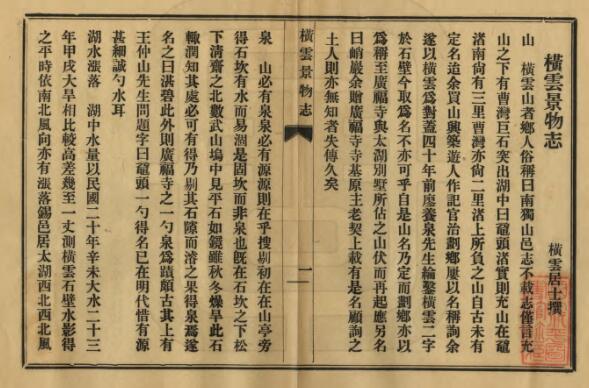 橫雲景物志
橫雲居士撰
山　橫雲山者鄉人俗稱曰南獨山邑志不載志僅言充
山之下有曹灣巨石突出湖中曰黿頭渚實則充山在黿
渚南尙有二里曹灣亦尙一二里渚上所負之山自古未有
定名迨余買山興築遊人作記官治劃鄉屢以名稱詢余
遂以橫雲爲對蓋四十年前廖養泉先生綸鑿橫雲二字
於石壁今取爲名不亦可乎自是山名乃定而劃鄉亦以
爲稱至廣福寺與太湖別墅所佔之山伏而再起應另名
曰峭巖余贈廣福寺寺基原主老契上載有是名顧詢之
土人則亦無知者失傳久矣
橫雲景物志
一
泉　山必有泉泉必有源源則在乎搜剔初在在山亭旁
得石坎有水而易涸是固坎而非泉也旣在石坎之下松
下淸齋之北數武山塢中見平石如鏡雖秋冬燥旱此石
輒潤知其處必可有得乃剔其石隙而濬之果得泉焉遂
名之曰湛碧此外則廣福寺之一勺泉爲蹟頗古其上有
王仲山先生問題字曰黿頭一勺得名已在明代惜有源
甚細誠勺水耳
湖水漲落　湖中水量以民國二十年辛未大水二十三
年甲戌大旱相比較高差幾至一丈測橫雲石壁水影得
之平時依南北風向亦有漲落錫邑居太湖西北西北風